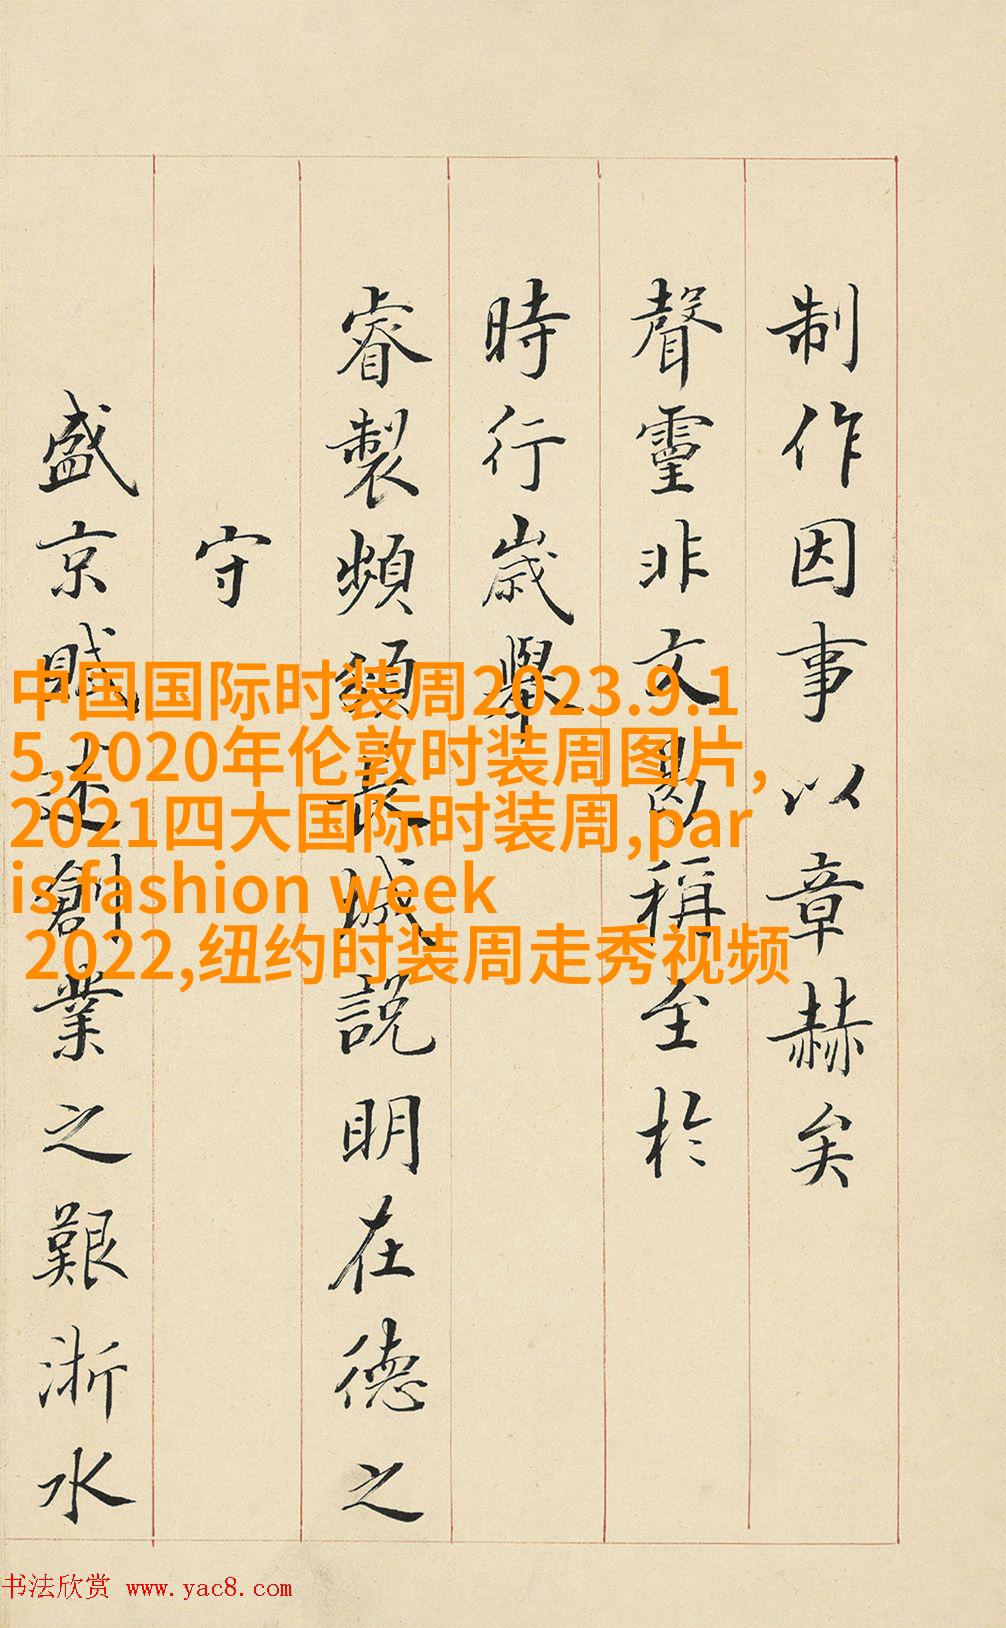 制作因事以章赫矣
聲靈非文曷稱至於
時行歲舉
睿製頻頒表城說明在德之
守
盛京賦述創業之艱浙水
中国国际时装周2023.9.1
5,2020年伦敦时装周图片,
2021四大国际时装周,par
is fashion week
2022,纽约时装周走秀视频
书法欣赏 www.yac8.com